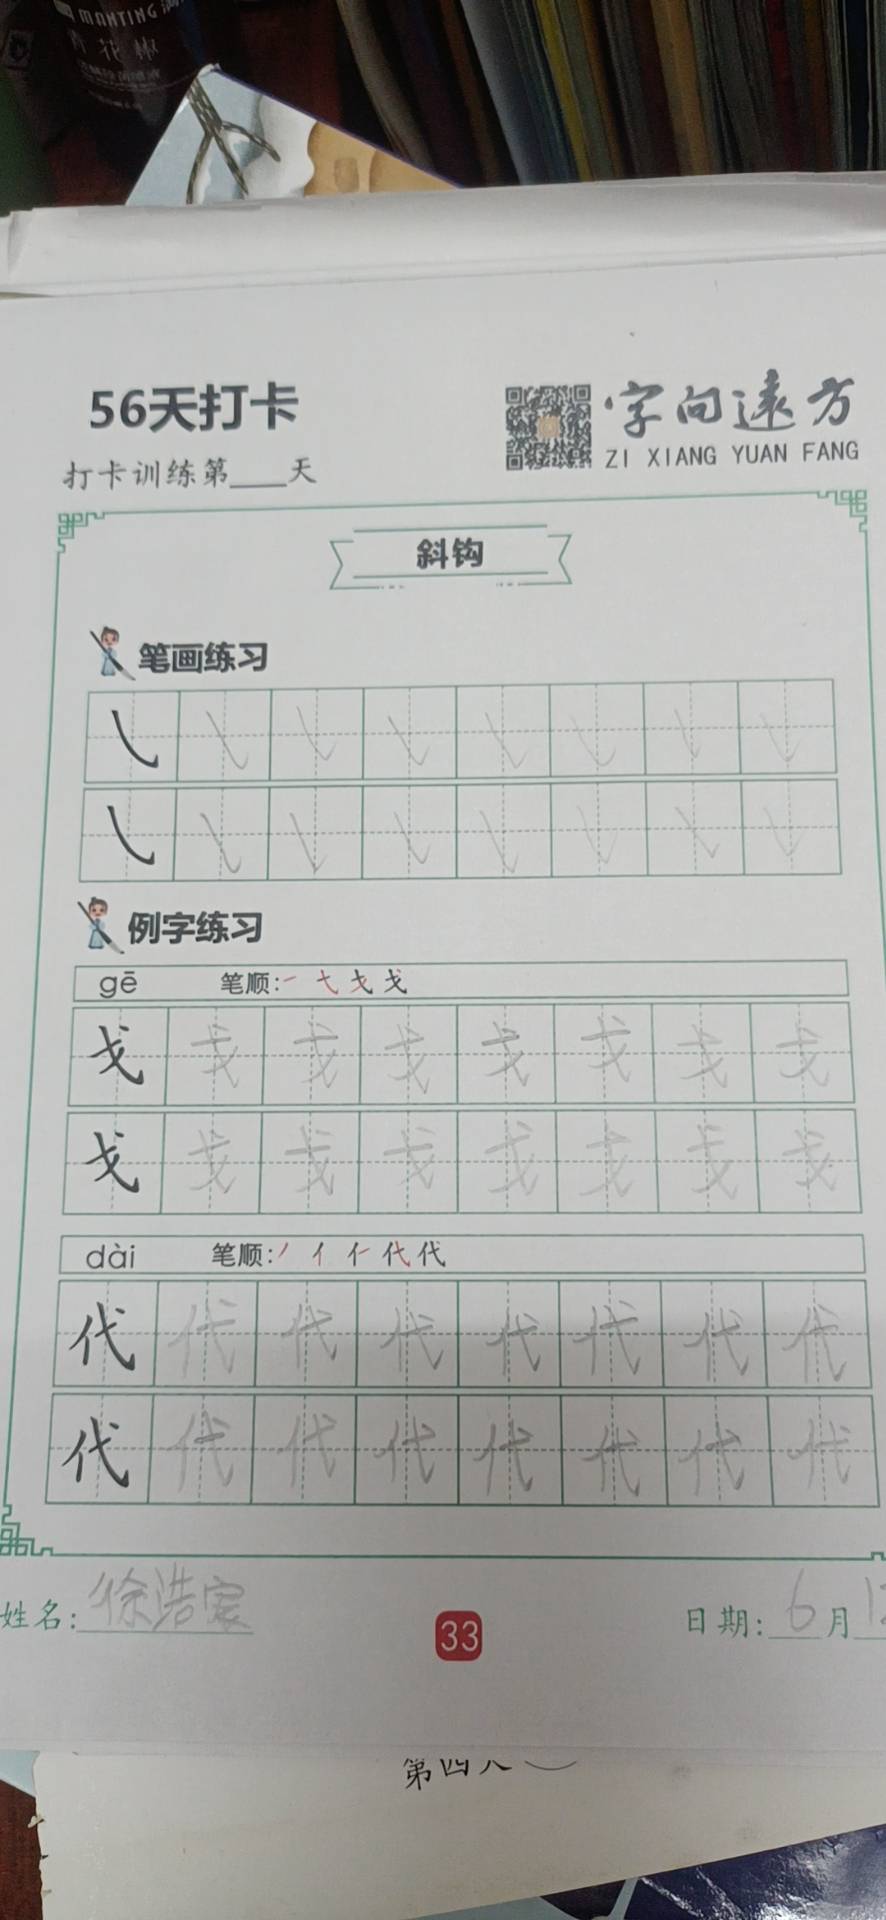 MANTING
青花椒
56天打卡
字向遠方
打卡训练第___天
ZI XIANG YUAN FANG
斜钩
笔画练习
㇂ ㇂ ㇂ ㇂ ㇂ ㇂ ㇂ ㇂
㇂ ㇂ ㇂ ㇂ ㇂ ㇂ ㇂ ㇂
例字练习
gē 笔顺:一 七 戈 戈
戈 戈 戈 戈 戈 戈 戈 戈
戈 戈 戈 戈 戈 戈 戈 戈
dài 笔顺:丿 亻 仁 代 代
代 代 代 代 代 代 代 代
代 代 代 代 代 代 代 代
姓名:徐浩宸
33
日期:6月12
第四八